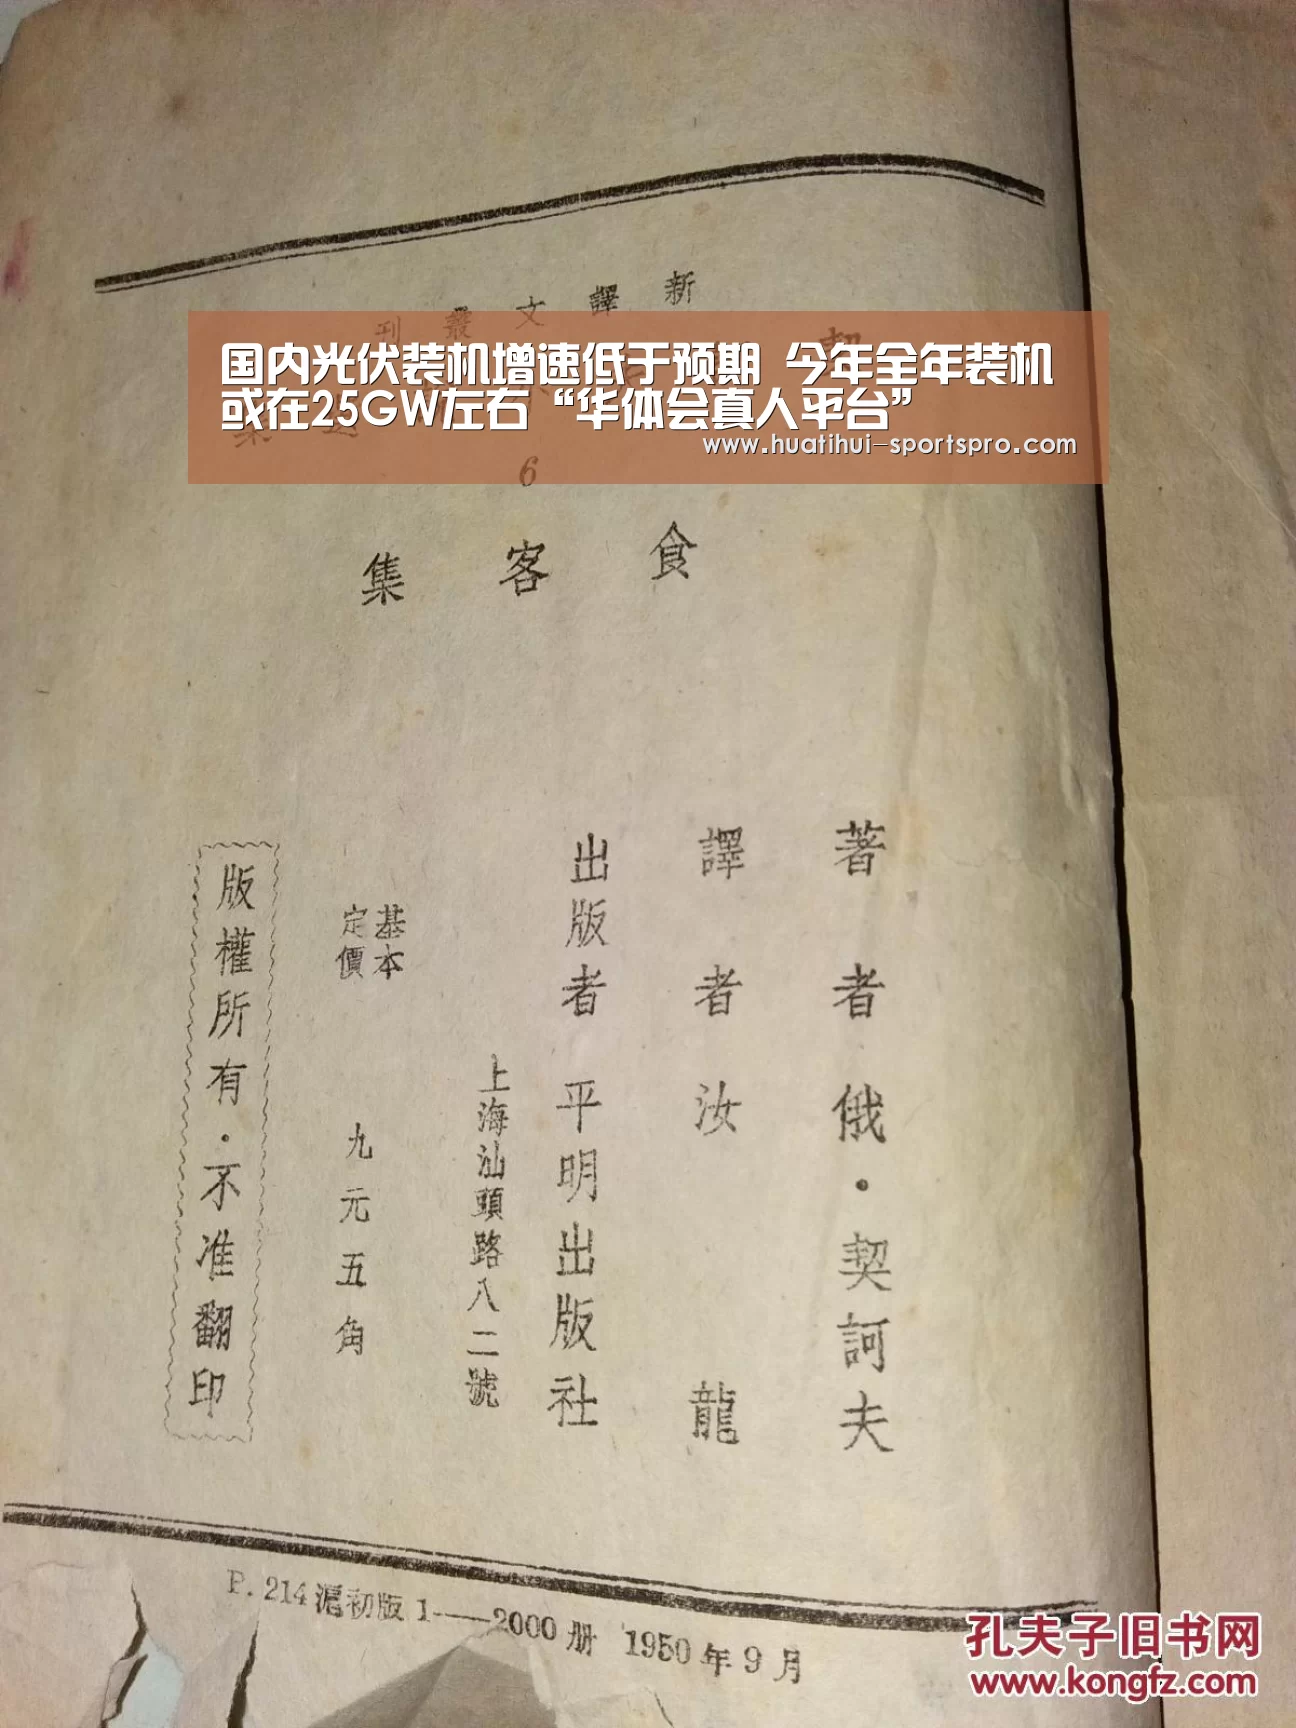 新譯文叢刊
国内光伏装机增速低于预期 今年全年装机
或在25GW左右“华体会真人平台”
www.huatihui-sportspro.com
6
食客集
著者 俄·契訶夫
譯者 汝龍
出版者 平明出版社
上海汕頭路八二號
基本
定價
九元五角
版權所有·不准翻印
P.214 滬初版 1——2000册 1950年9月
孔夫子旧书网
www.kongfz.com